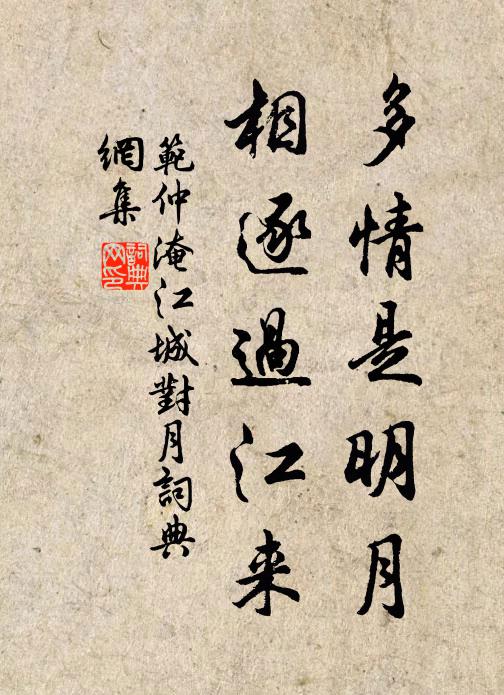 多情是明月
相逐過江来
範仲淹江城對月詞典
網集
詞典网印